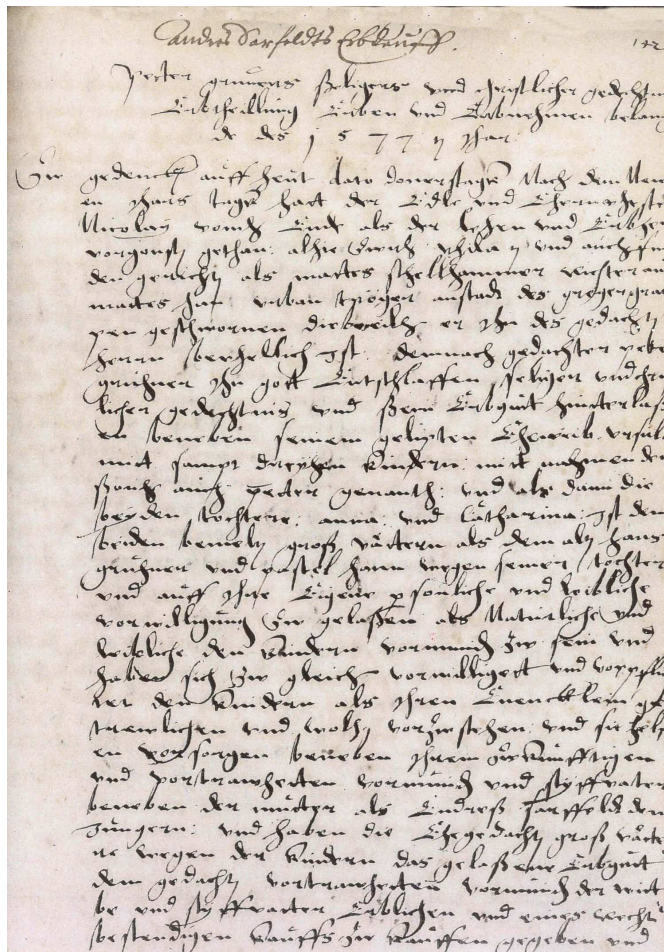 Andres Sarfeldts Erbkeuff.
142
petter gruners seligers vnd christlicher gedechtn
Erbtheillung Erben vnd Erbnehmen belan
de des 1577 Jhar
Zw gedenck auff heut dato donerstages Nach dem New
en Jhars tage hatt der Edle vnd Ehernvheste
Nicolaÿ vonth Ende als der Lehen vnd Erbher
vorgonst gethan alhie
den gericht als mattes schellhammer richter
mattes han vrban anstadt des greger
pen geschwornen dieweilh er Jhn des gedacht
herrn Ist demnach gedachter pete
gruhner Jhn gott Entschlaffen seliger vnd chri
licher gedechtnis vnd sein Erbgut hinterlaß
en beneben seinem gelipten Eheweib vrsul
mit sampt dreyhen Kindern mit nahmen de
sonh auch petter genanth vnd als dann die
beyden tochtere anna vnd Catharina Ist den
beiden bemelt groß vattern als dem alt hans
gruhner vnd hann wegen seiner tochter
vnd auff Jhre Eigene personliche vnd leibliche
vorwilligung Zw gelaßen als Naturliche vnd
leibliche den Kindern vormund Zw sein vnd
haben sich Zw gleich vorwilligett vnd vorpfli
tet den Kindern als Jhren Enencklein ge
trewlichen vnd wolh vorZwstehen vnd sie helf
en vorsorgen beneben Jhrem Zwkunfftigen
vnd vortrawheten vormund vnd styffvater
beneben der mutter als Endreß Sarffeldt den
Jungern vnd haben die Ehegedacht groß vatte
re wegen der Kindern das gelaßene Erbgut
dem gedacht vortrawheten vormund der wit
be vnd styffvatter Erblichen vnd eines recht
bestendigen Kauffs Zw Kauffen gegeben vnd